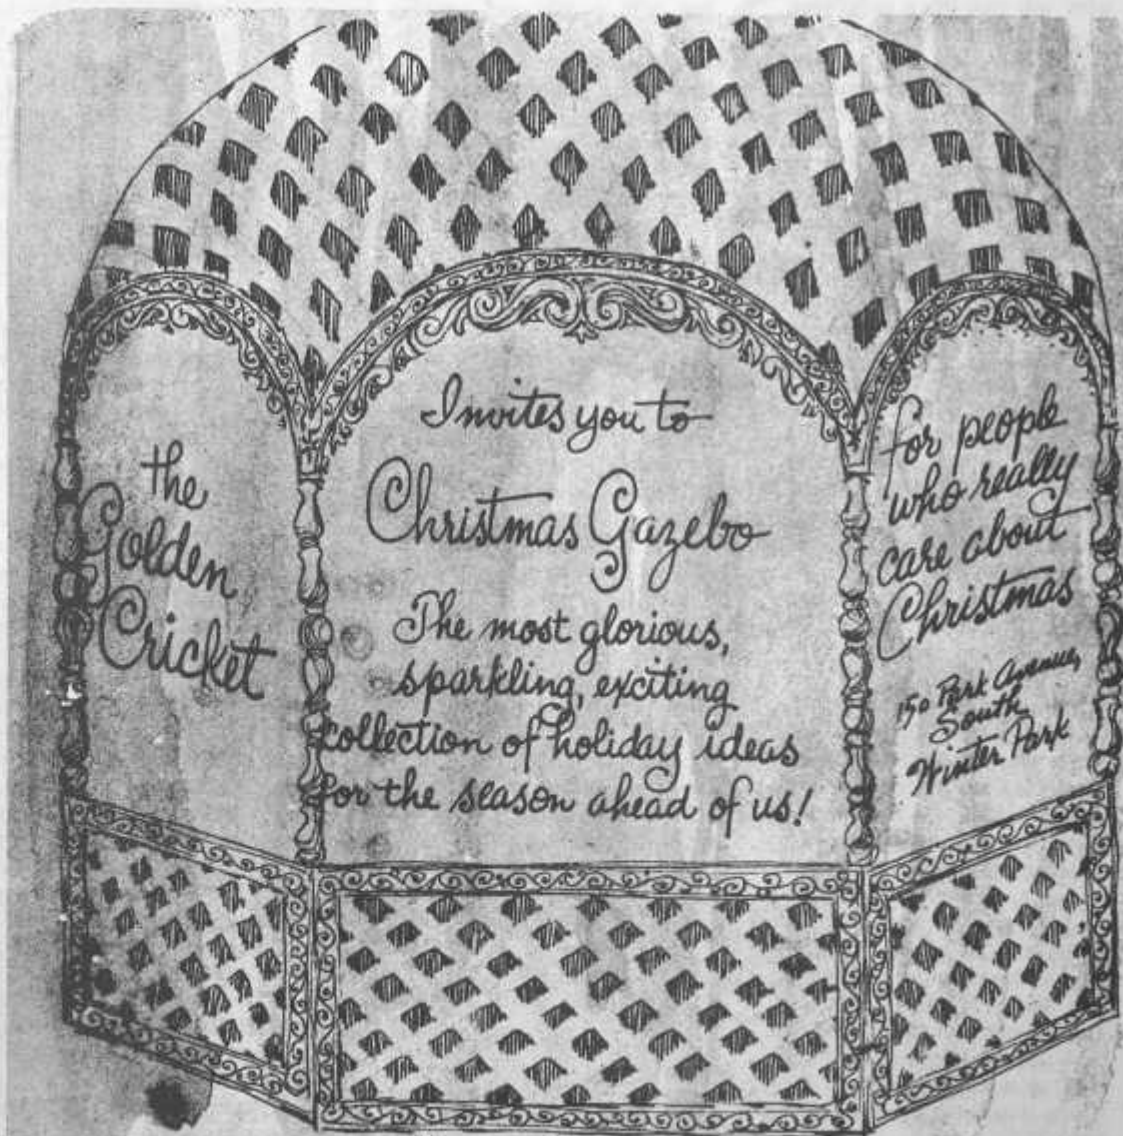 the
Golden
Cricket
Invites you to
Christmas Gazebo
The most glorious,
sparkling, exciting
collection of holiday ideas
for the season ahead of us!
for people
who really
care about
Christmas
150 Park Avenue,
South
Winter Park